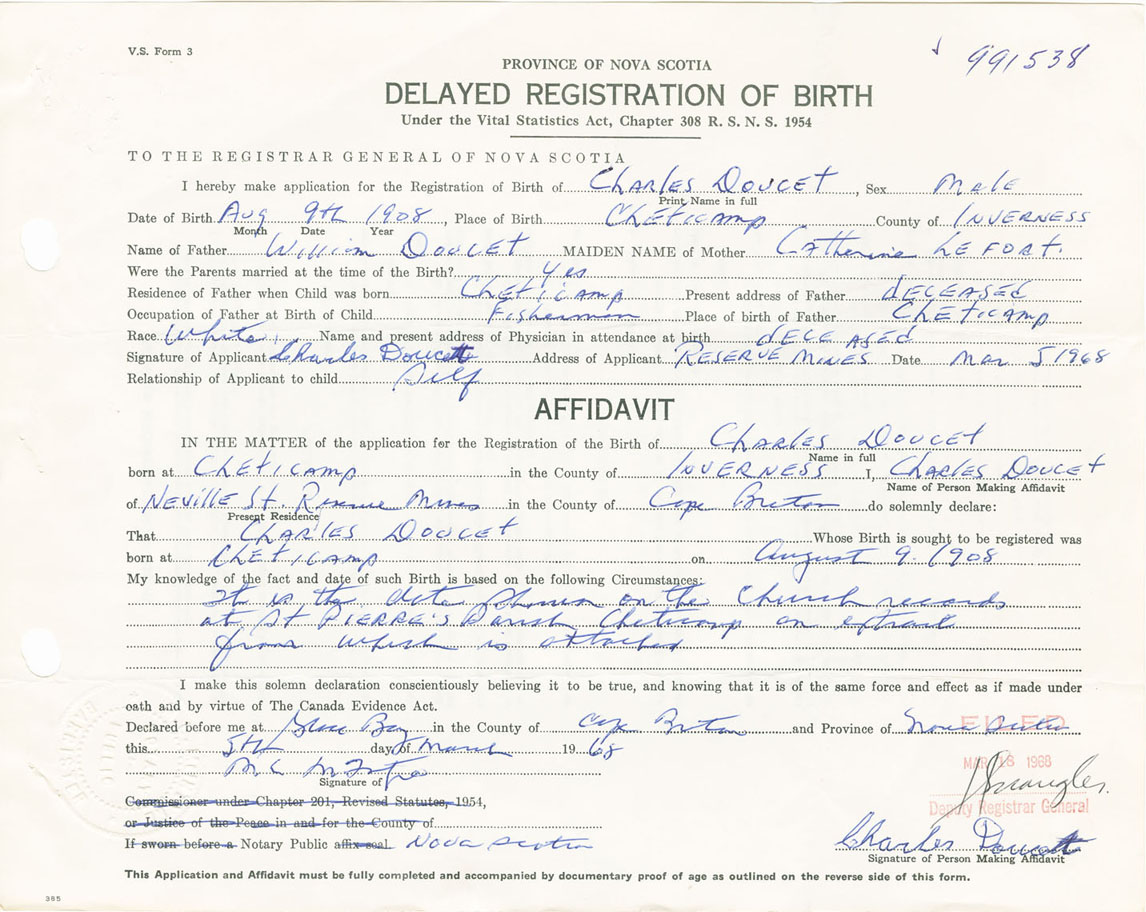 V.S. Form 3
991538
PROVINCE OF NOVA SCOTIA
DELAYED REGISTRATION OF BIRTH
Under the Vital Statistics Act, Chapter 308 R. S. N. S. 1954
TO THE REGISTRAR GENERAL OF NOVA SCOTIA
I hereby make application for the Registration of Birth of CHARLES DOUCET, Sex Male
Print Name in full
Date of Birth Aug 9th 1908, Place of Birth CHETICAMP County of INVERNESS
Month Date Year
Name of Father William DOUCET MAIDEN NAME of Mother Catherine LE FORT.
Were the Parents married at the time of the Birth? Yes
Residence of Father when Child was born CHETICAMP Present address of Father DECEASED
Occupation of Father at Birth of Child Fisherman Place of birth of Father CHETICAMP
Race White Name and present address of Physician in attendance at birth DECEASED
Signature of Applicant Charles Doucett Address of Applicant RESERVE MINES Date Mar 5 1968
Relationship of Applicant to child Self
AFFIDAVIT
IN THE MATTER of the application for the Registration of the Birth of CHARLES DOUCET
Name in full
born at CHETICAMP in the County of INVERNESS I, CHARLES DOUCET
Name of Person Making Affidavit
of NEVILLE St. Reserve Mines in the County of Cape Breton do solemnly declare:
Present Residence
That CHARLES DOUCET Whose Birth is sought to be registered was
born at CHETICAMP on August 9. 1908
My knowledge of the fact and date of such Birth is based on the following Circumstances:
It is the date shown on the Church records
at St PIERRE'S Parish Cheticamp an extract
from which is attached
I make this solemn declaration conscientiously believing it to be true, and knowing that it is of the same force and effect as if made under
oath and by virtue of The Canada Evidence Act.
Declared before me at Glace Bay in the County of Cape Breton and Province of Nova Scotia
FILED
this 5th day of March 1968
MAR 18 1968
Signature of
Commissioner under Chapter 201, Revised Statutes, 1954,
Deputy Registrar General
or Justice of the Peace in and for the County of
If sworn before a Notary Public affix seal. Nova Scotia
Charles Doucett
Signature of Person Making Affidavit
This Application and Affidavit must be fully completed and accompanied by documentary proof of age as outlined on the reverse side of this form.
385